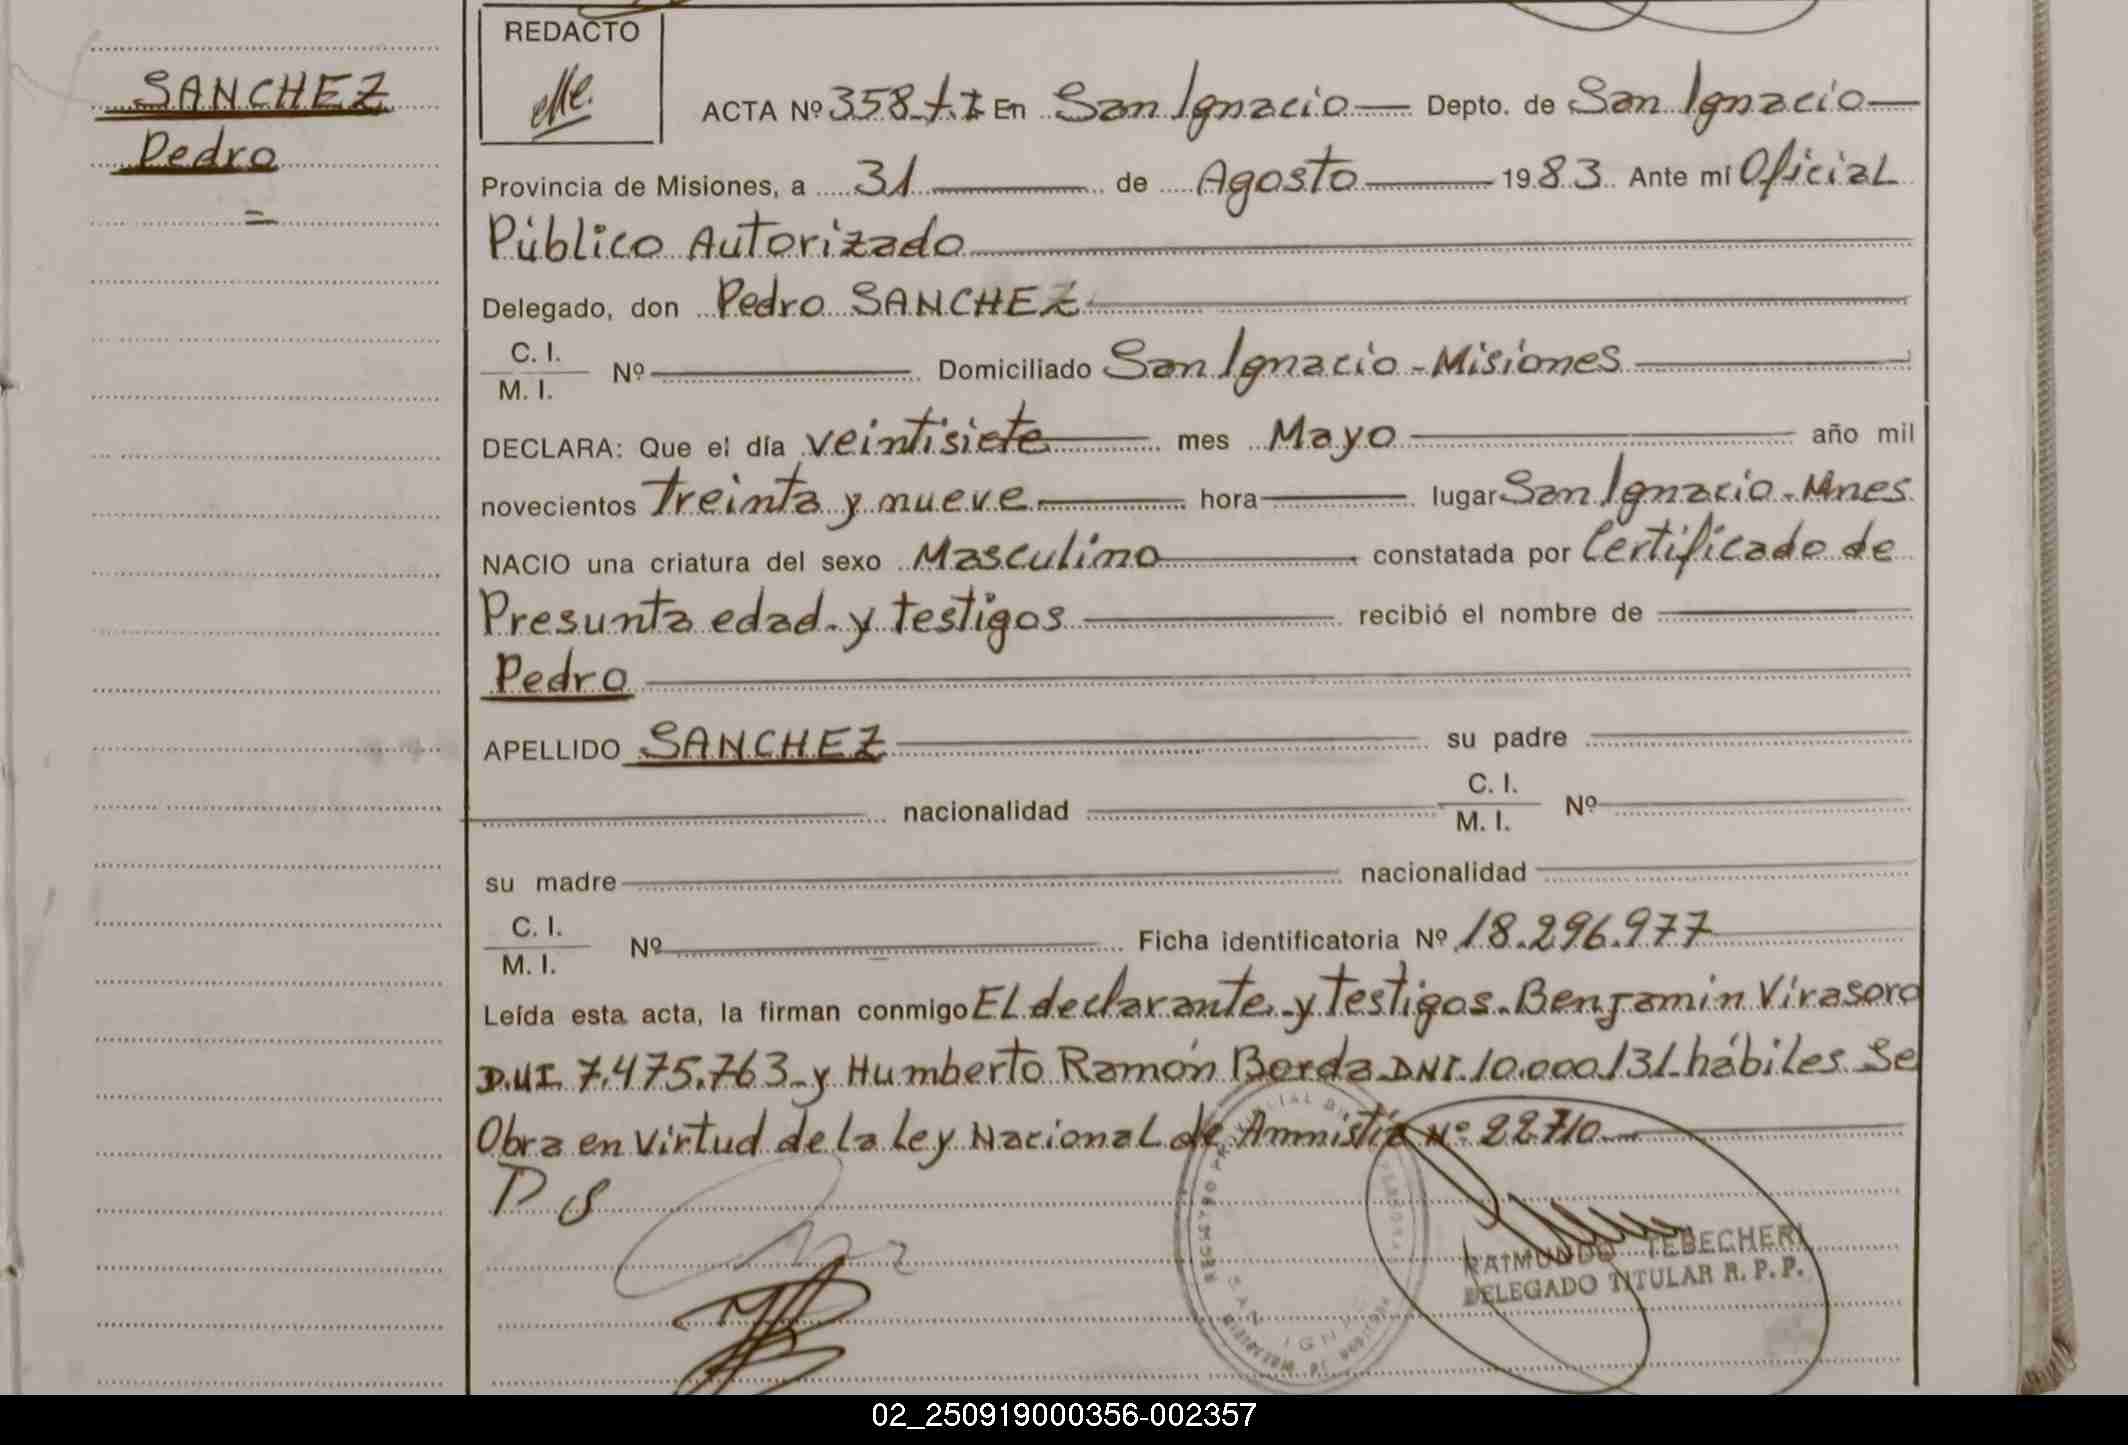 REDACTO
SANCHEZ
Pedro
ACTA Nº 358 En San Ignacio Depto. de San Ignacio
Provincia de Misiones, a 31 de Agosto 1983 Ante mí Oficial
Público Autorizado
Delegado, don Pedro SANCHEZ
C. I.
M. I.
Nº Domiciliado San Ignacio - Misiones
DECLARA: Que el día veintisiete mes Mayo año mil
novecientos treinta y nueve hora lugar San Ignacio - Mnes
NACIO una criatura del sexo Masculino constatada por Certificado de
Presunta edad y testigos recibió el nombre de
Pedro
APELLIDO SANCHEZ su padre
nacionalidad C. I.
M. I. Nº
su madre nacionalidad
C. I.
M. I.
Nº Ficha identificatoria Nº 18.296.977
Leída esta acta, la firman conmigo El declarante y testigos. Benjamin Virasoro
D.N.I. 7.475.763 y Humberto Ramón Borda DNI. 10.000.131. hábiles. Se
Obra en virtud de la Ley Nacional de Amnistía Nº 22710
P S
RAIMUNDO TEBECHERI
DELEGADO TITULAR R. P. P.
02_250919000356-002357